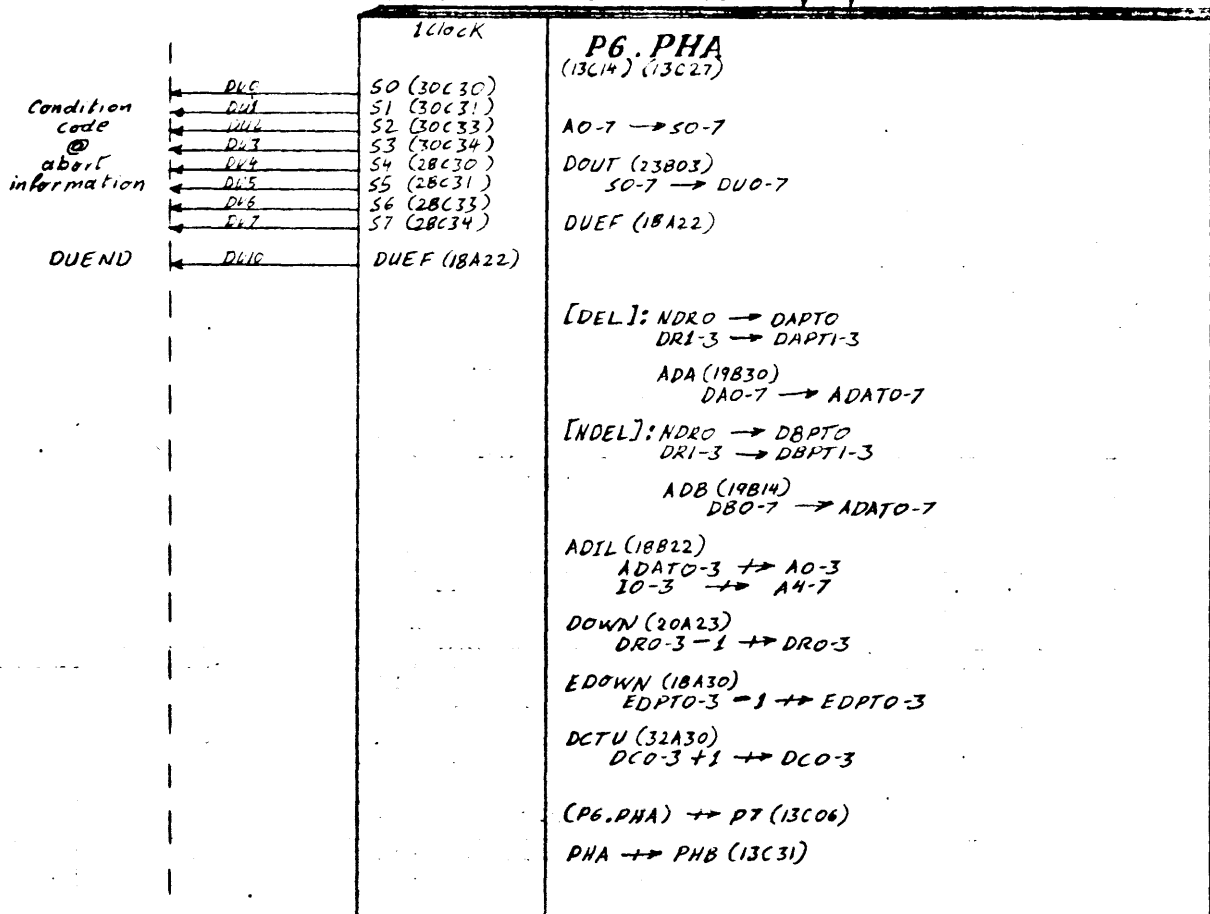 1 clock
P6.PHA
(13C14) (13C27)
Condition
code
@
abort
information
DU0
DU1
DU2
DU3
DU4
DU5
DU6
DU7
S0 (30C30)
S1 (30C31)
S2 (30C33)
S3 (30C34)
S4 (28C30)
S5 (28C31)
S6 (28C33)
S7 (28C34)
DUEND
DU10
DUEF (18A22)
A0-7 → S0-7
DOUT (23B03)
S0-7 → DU0-7
DUEF (18A22)
[DEL]: NDR0 → DAPT0
DR1-3 → DAPT1-3
ADA (19B30)
DA0-7 → ADAT0-7
[NDEL]: NDR0 → DBPT0
DR1-3 → DBPT1-3
ADB (19B14)
DB0-7 → ADAT0-7
ADIL (18B22)
ADAT0-3 ↛ A0-3
I0-3 ↛ A4-7
DOWN (20A23)
DR0-3 - 1 ↛ DR0-3
EDOWN (18A30)
EDPT0-3 - 1 ↛ EDPT0-3
DCTU (32A30)
DC0-3 + 1 ↛ DC0-3
(P6.PHA) ↛ P7 (13C06)
PHA ↛ PHB (13C31)